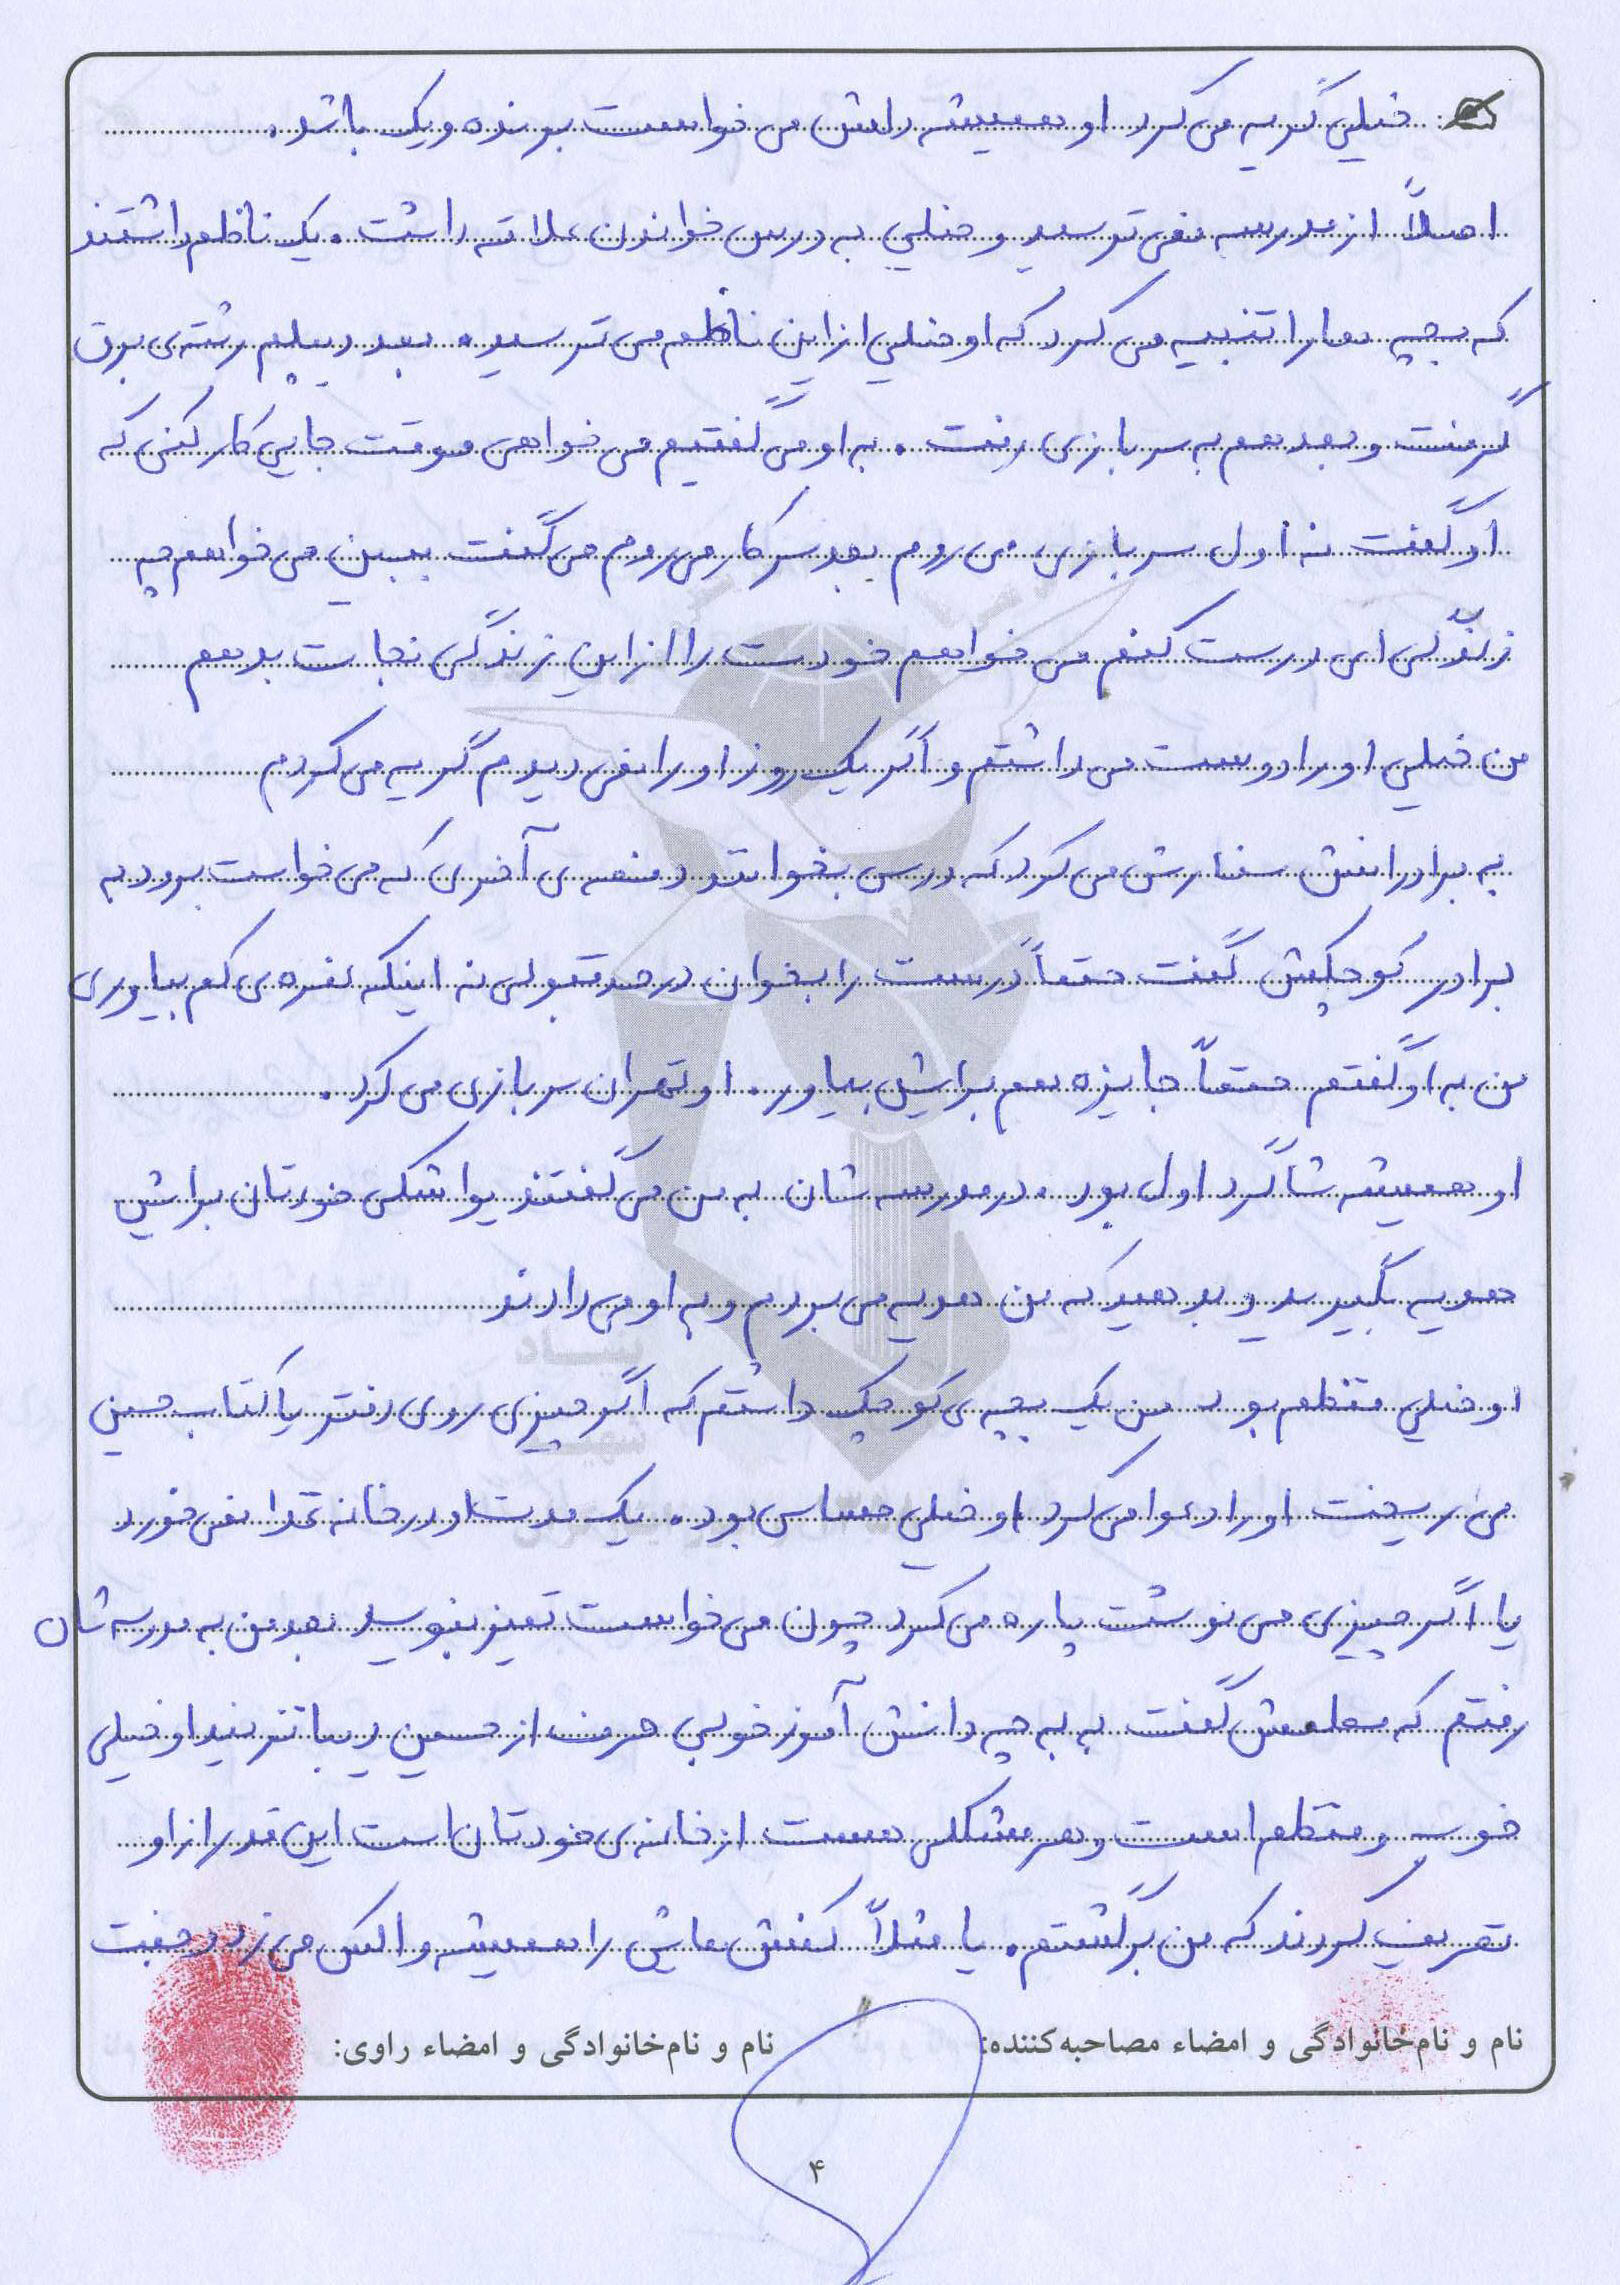 خیلی گریه می کرد او همیشه دلش می خواست برنده و یک باشد.
اصلاً از مدرسه نمی ترسید و خیلی به درس خواندن علاقه داشت. یک ناظم داشتند
که بچه ها را تنبیه می کرد که او خیلی از این ناظم می ترسید. بعد دیپلم رشته ی برق
گرفت و بعد هم به سربازی رفت. به او می گفتیم می خواهی موقت جایی کار کنی که
او گفت نه اول سربازی می روم بعد سر کار می روم می گفت ببین می خواهم چه
زندگی ای درست کنم می خواهم خودت را از این زندگی نجات بدهم
من خیلی او را دوست می داشتم و اگر یک روز او را نمی دیدم گریه می کردم
به برادرانش سفارش می کرد که درس بخوانند دفعه ی آخری که می خواست برود به
برادر کوچکش گفت حتماً درست را بخوان در حد قبولی نه اینکه نمره ی کم بیاوری
من به او گفتم حتماً جایزه هم برایش بیاور. او تهران سربازی می کرد.
او همیشه شاگرد اول بود. در مدرسه شان به من می گفتند یواشکی خودتان براش
هدیه بگیرید و بدهید که من هدیه می بردم و به او می دادند
او خیلی منظم بود من یک بچه ی کوچک داشتم که اگر چیزی روی دفتر یا کتاب حسین
می ریخت او را دعوا می کرد او خیلی حساس بود. یک مدت او در خانه غذا نمی خورد
یا اگر چیزی می نوشت پاره می کرد چون می خواست تمیز بنویسد بعد من به مدرسه شان
رفتم که معلمش گفت به به چه دانش آموز خوبی حرف از حسین دیبا نزنید او خیلی
خوب و منظم است و هر مشکلی هست از خانه ی خودتان است این قدر از او
تعریف کردند که من برگشتم. یا مثلاً کفش هاش را همیشه واکس می زد و جفت
نام و نام‌خانوادگی و امضاء مصاحبه‌کننده: نام و نام‌خانوادگی و امضاء راوی:
۴